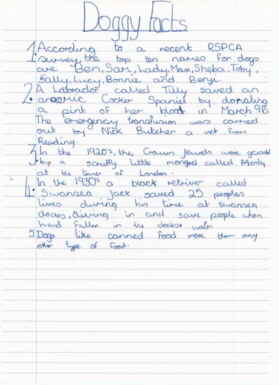 Doggy Facts
1. According to a recent RSPCA
survey the top ten names for dogs
are Ben, Sam, Lady, Max, Sheba, Toby,
Sally, Lucy, Bonnie and Beryl.
2. A Labrador called Tilly saved an
anaemic Cocker Spaniel by donating
a pint of her blood in March 96
The emergency transfusion was carried
out by Nick Butcher a vet from
Reading.
3. In the 1920s, the Crown Jewels were guarded
by a scruffy little mongrel called Monty
at the tower of London.
4. In the 1930s a black retriever called
Swansea Jack saved 25 peoples
lives during his time at swansea
docks, diving in and save people when
had fallen in the docks
5. Dogs like canned food more than any
other type of food.